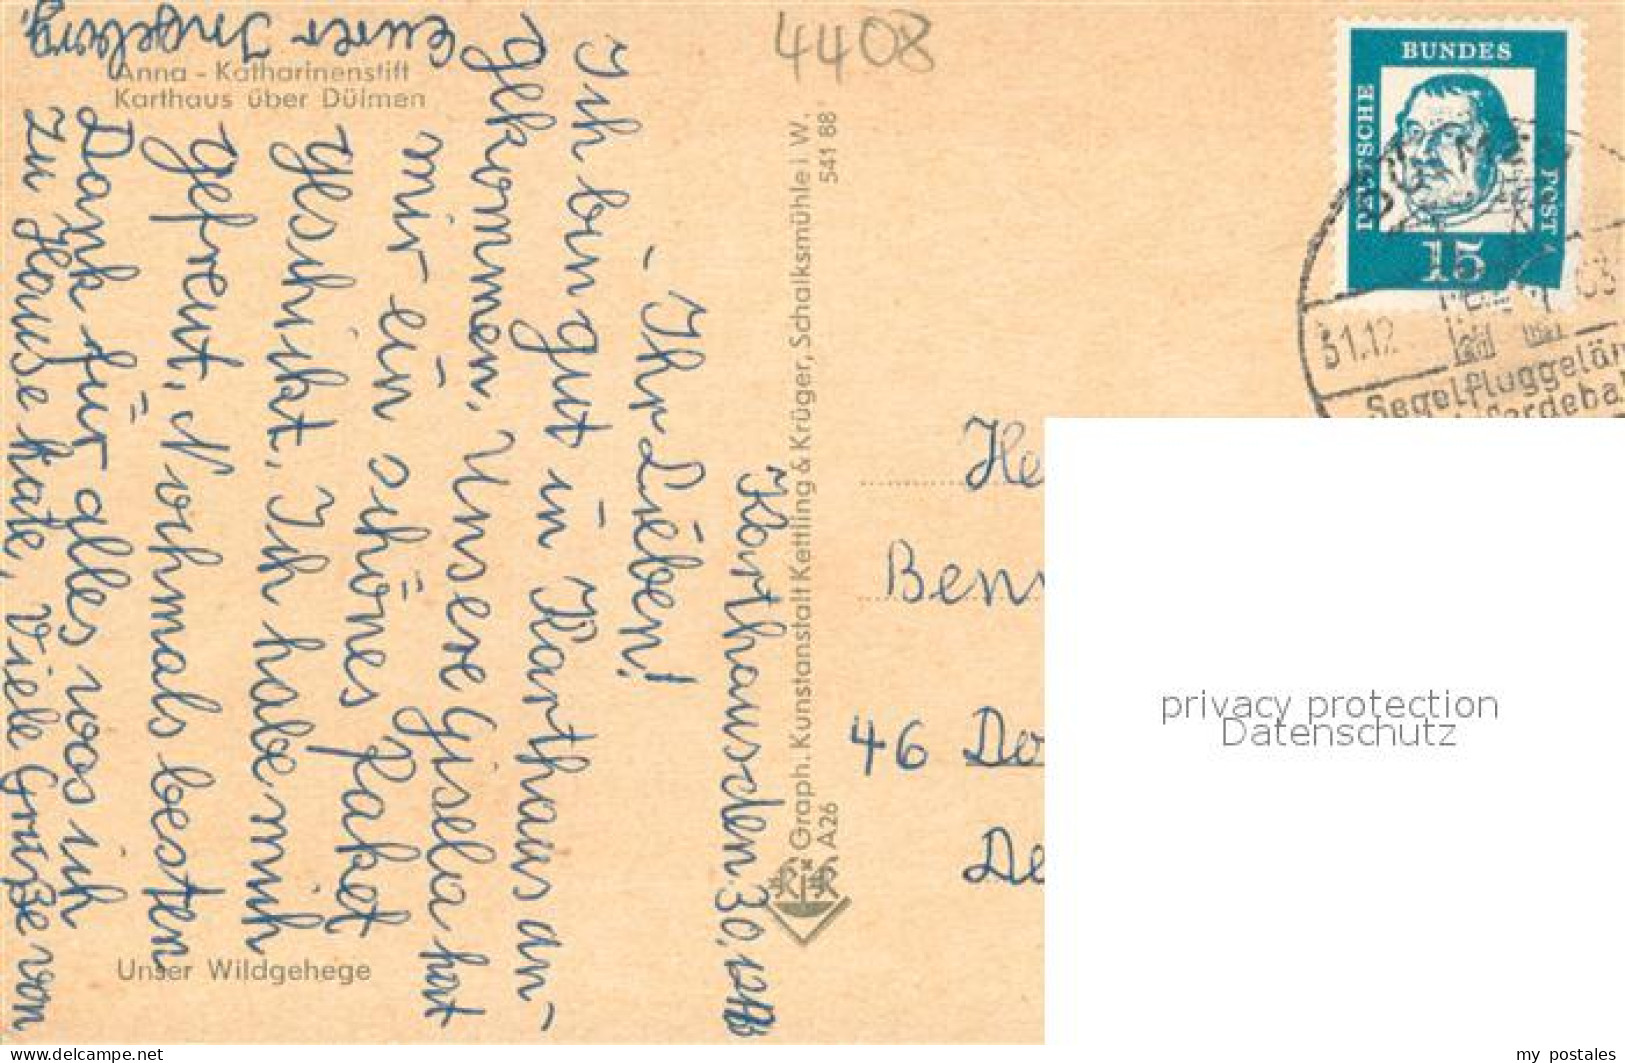 Karthaus den 30.
Ihr Lieben!
Ich bin gut in Karthaus an-
gekommen. Unsere Gisela hat
mir ein schönes Paket
geschikt. Ich habe mich
gefreut, Nochmals besten
Dank für alles was ich
zu Hause hate, Viele Grüße von
Eurer Ingeborg.
Anna - Katharinenstift
Karthaus über Dülmen
Unser Wildgehege
Graph. Kunstanstalt Kettling & Krüger, Schalksmühle i. W.
A26
541 68
4408
DEUTSCHE
BUNDES
POST
15
DÜLMEN
31.12
Segelfluggelän
He
Ben
46 Do
De
privacy protection
Datenschutz
my_postales
https://www.delcampe.net